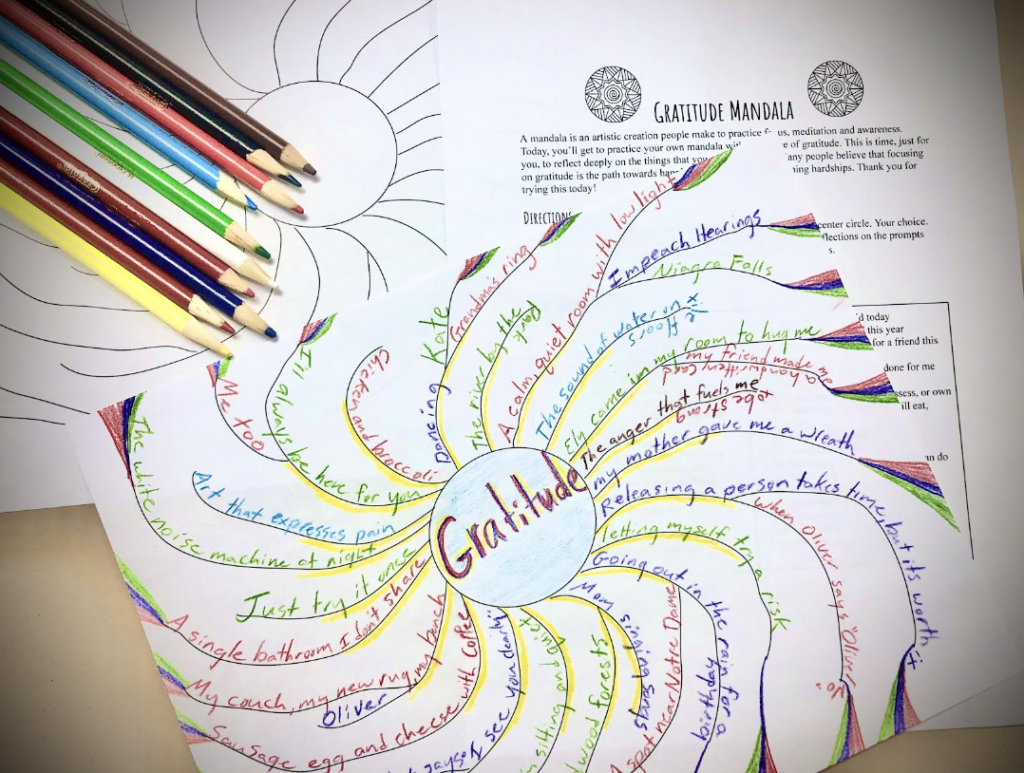 GRATITUDE MANDALA
A mandala is an artistic creation people make to practice us, meditation and awareness.
Today, you'll get to practice your own mandala e of gratitude. This is time, just for
you, to reflect deeply on the things that you any people believe that focusing
on gratitude is the path towards ing hardships. Thank you for
trying this today!
DIRECTIONS
center circle. Your choice.
flections on the prompts
s.
d today
this year
for a friend this
done for me
ssess, or own
ill eat,
n do
Gratitude
Me too
I'll always be here for you
Chicken and broccoli
Dancing Kate
Grandma's ring
The river by the Park
A calm, quiet room with low light
Impeach Hearings
Niagra Falls
The sound of water on
floors
Eli come in my room to hug me
my friend made me
a handwritten card
The anger that fuels me
to be strong
my mother gave me a wreath
Releasing a person takes time, but its worth it
When Oliver says "Oliver
letting myself try a risk
Going out in the rain for a birthday
Mom singing songs
A spot near Notre Dame
wood forests
sitting and quiet
says "I see you dearly"
Sausage egg and cheese with coffee
Oliver
My couch, my new rug, my bench
A single bathroom I don't share
Just try it one
The white noise machine at night
Art that expresses pain